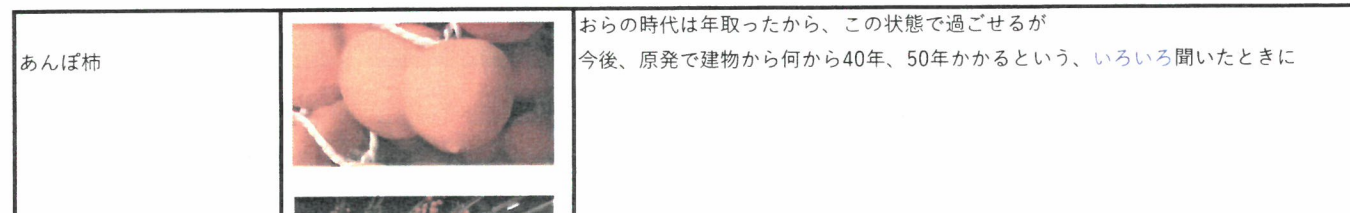 あんぽ柿
おらの時代は年取ったから、この状態で過ごせるが
今後、原発で建物から何から40年、50年かかるという、いろいろ聞いたときに